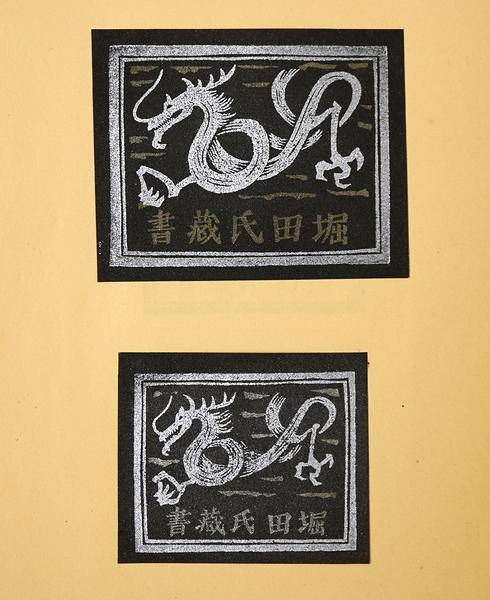 堀田氏蔵書
堀田氏蔵書